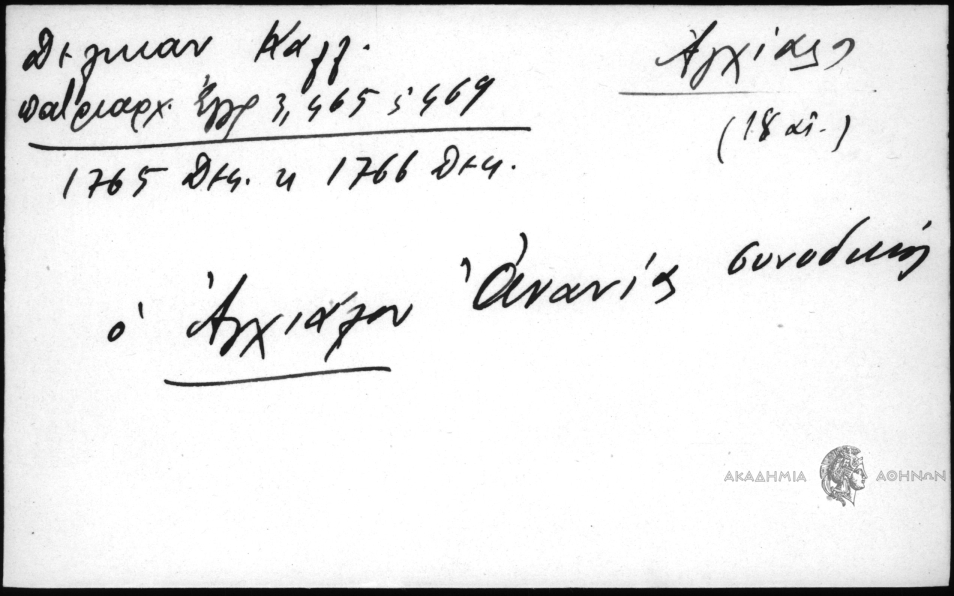 Δελικαν Καλλ.
πατριαρχ. Έγγρ 3, 465 ; 469
1765 Δεκ. κ 1766 Δεκ.
Ἀγχίαλος
(18 αἰ.)
ὁ Ἀγχιάλου Ἀνανίας συνοδικός
ΑΚΑΔΗΜΙΑ ΑΘΗΝΩΝ